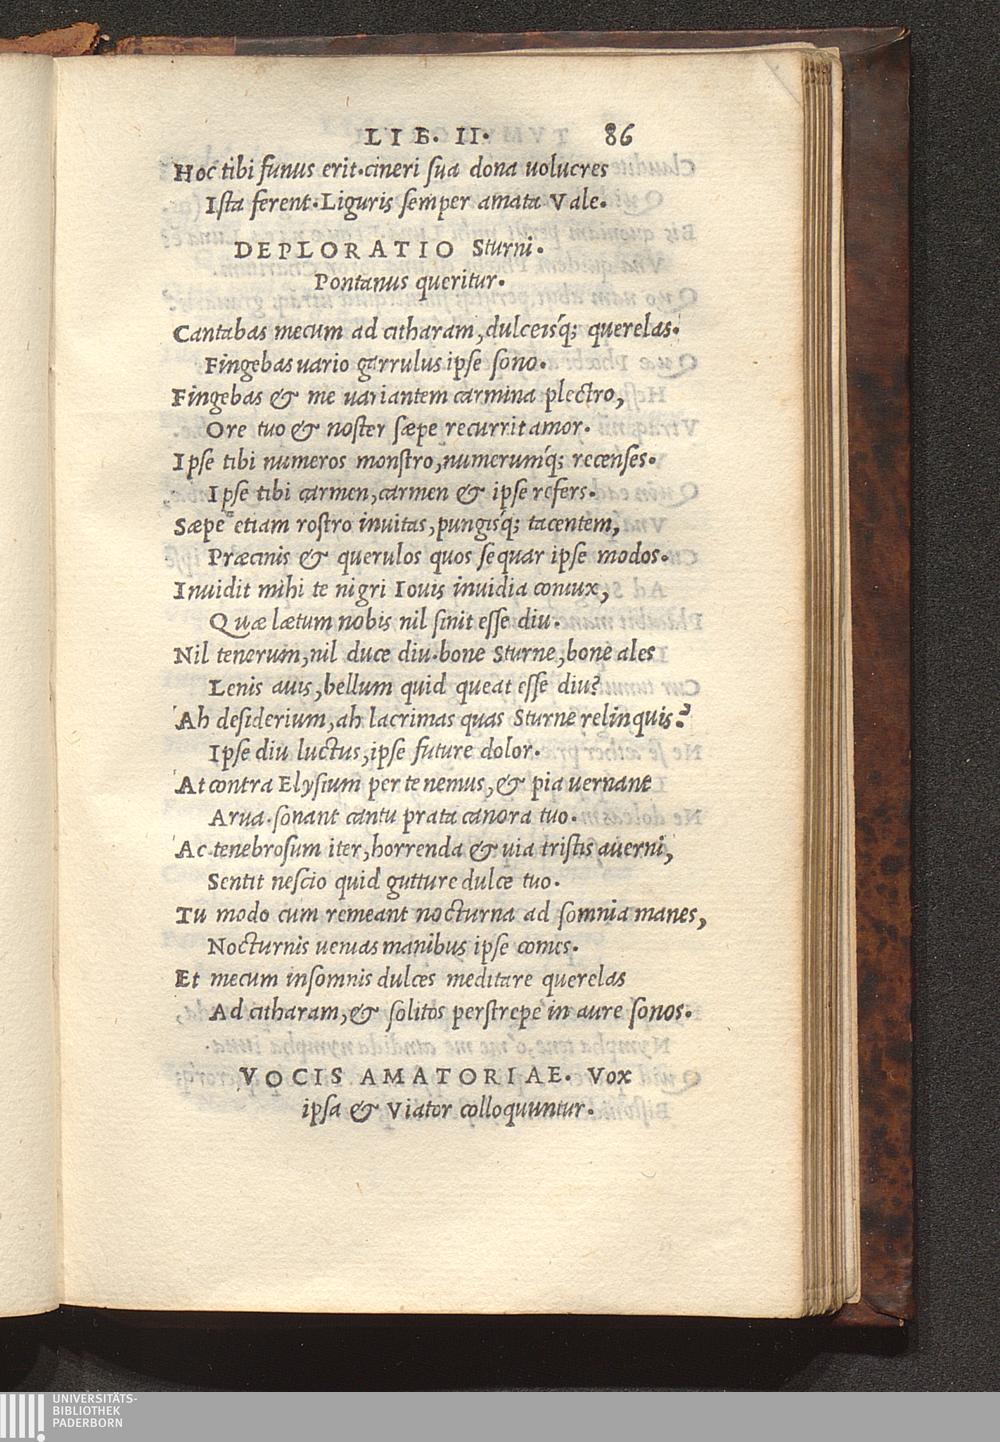 LIB. II. 86
Hoc tibi funus erit.cineri sua dona uolucres
Ista ferent.Liguris semper amata Vale.
DEPLORATIO Sturni.
Pontanus queritur.
Cantabas mecum ad citharam,dulceisq́; querelas.
Fingebas uario garrulus ipse sono.
Fingebas & me uariantem carmina plectro,
Ore tuo & noster sæpe recurrit amor.
Ipse tibi numeros monstro,numerumq́; recenses.
Ipse tibi carmen,carmen & ipse refers.
Sæpe etiam rostro inuitas,pungisq́; tacentem,
Præcinis & querulos quos sequar ipse modos.
Inuidit mihi te nigri Iouis inuidia coniux,
Quæ lætum nobis nil sinit esse diu.
Nil tenerum,nil dulce diu.bone Sturne,bone ales
Lenis auis,bellum quid queat esse diu?
Ah desiderium,ah lacrimas quas Sturne relinquis?
Ipse diu luctus,ipse future dolor.
At contra Elysium per te nemus,& pia uernant
Arua.sonant cantu prata canora tuo.
Ac tenebrosum iter,horrenda & uia tristis auerni,
Sentit nescio quid gutture dulce tuo.
Tu modo cum remeant nocturna ad somnia manes,
Nocturnis uenias manibus ipse comes.
Et mecum insomnis dulces meditare querelas
Ad citharam,& solitos perstrepe in aure sonos.
VOCIS AMATORIAE. Vox
ipsa & Viator colloquuntur.
UNIVERSITÄTS-
BIBLIOTHEK
PADERBORN